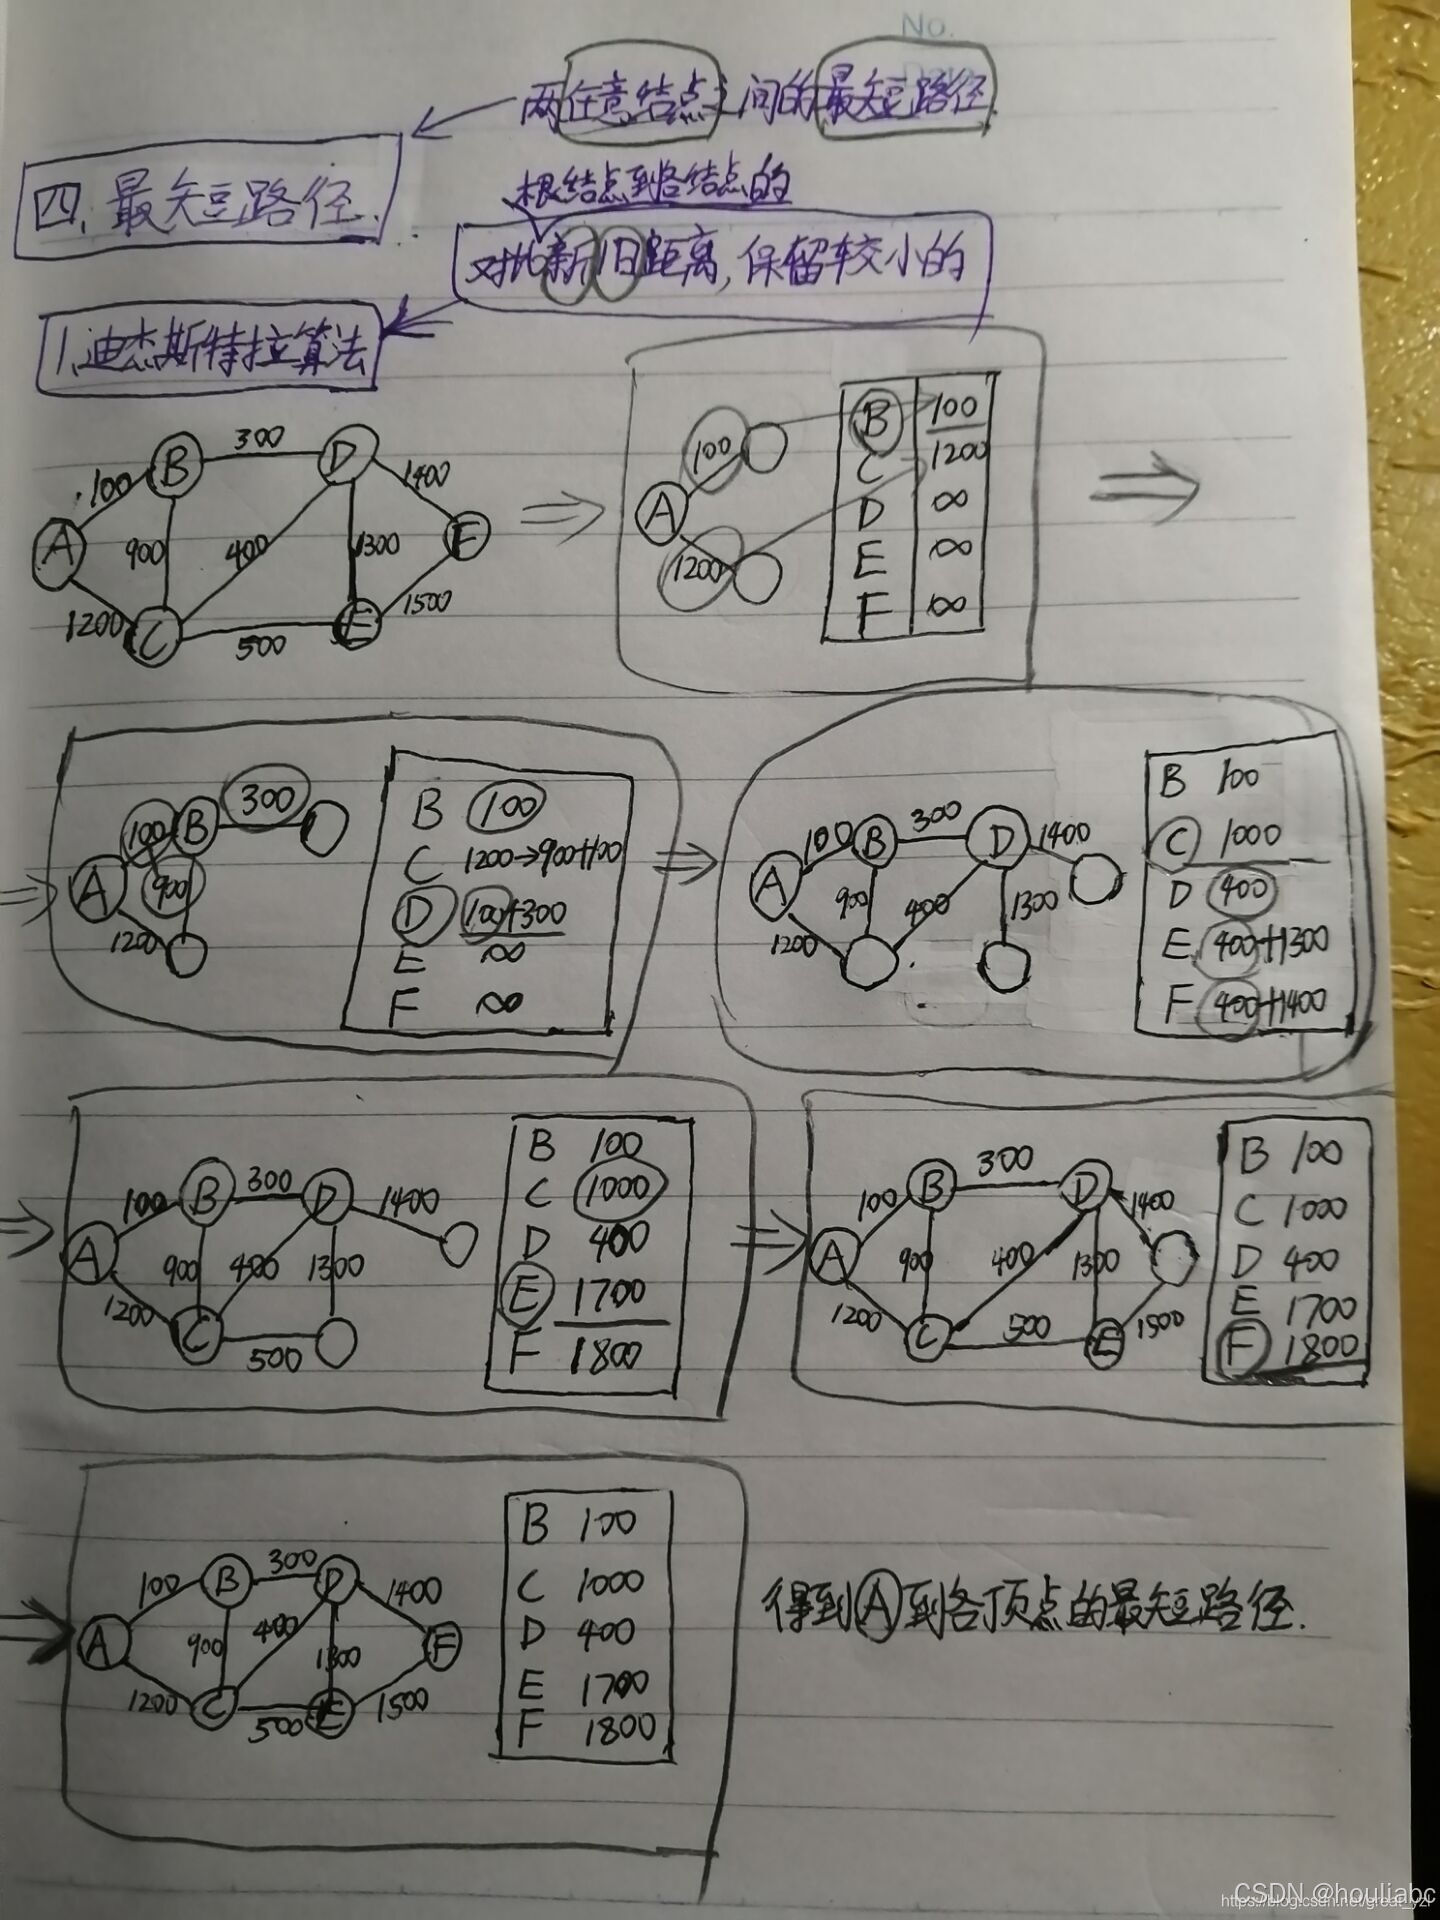 No.
Date
两任意结点之间的最短路径.
四.最短路径.
根结点到各结点的
对比新旧距离,保留较小的
1.迪杰斯特拉算法
100 B 300 D 1400
A 900 400 1300 F
1200 C 500 E 1500
100
A
1200
B 100
C 1200
D ∞
E ∞
F ∞
100 B 300
A 900
1200
B 100
C 1200→900+100
D 100+300
E ∞
F ∞
100 B 300 D 1400
A 900 400 1300
1200
B 100
C 1000
D 400
E 400+1300
F 400+1400
100 B 300 D 1400
A 900 400 1300
1200 C 500
B 100
C 1000
D 400
E 1700
F 1800
100 B 300 D 1400
A 900 400 1300
1200 C 500 E 1500
B 100
C 1000
D 400
E 1700
F 1800
100 B 300 D 1400
A 900 400 1300 F
1200 C 500 E 1500
B 100
C 1000
D 400
E 1700
F 1800
得到A到各顶点的最短路径.
CSDN @houliabc
https://blog.csdn.net/great_yzl